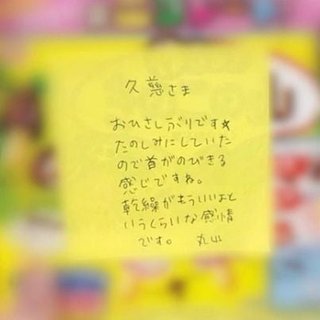 久慈さま
おひさしぶりです★
たのしみにしていた
ので首がのびきる
感じですね。
乾燥がもういいよと
いうくらいな感情
です。 丸山